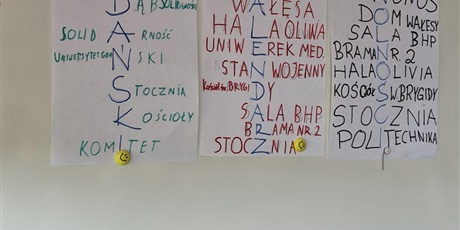 DĄB SOLIDARNOŚCI
SOLIDARNOŚĆ
UNIWERSYTET GDAŃSKI
STOCZNIA
KOŚCIOŁY
KOMITET
WAŁĘSA
HALA OLIWA
UNIWEREK MED.
STAN WOJENNY
KOŚCIÓŁ ŚW. BRYGIDY
SALA BHP
BRAMA NR. 2
STOCZNIA
DOM WAŁĘSY
SALA BHP
BRAMA NR. 2
HALA OLIVIA
KOŚCIÓŁ ŚW. BRYGIDY
STOCZNIA
POLITECHNIKA